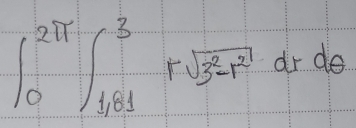 ∫₀^{2π} ∫_{1,81}^{3} r√(3²-r²) dr dθ